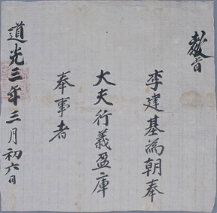 敎旨
李建基爲朝奉
大夫行義盈庫
奉事者
道光三年三月初六日